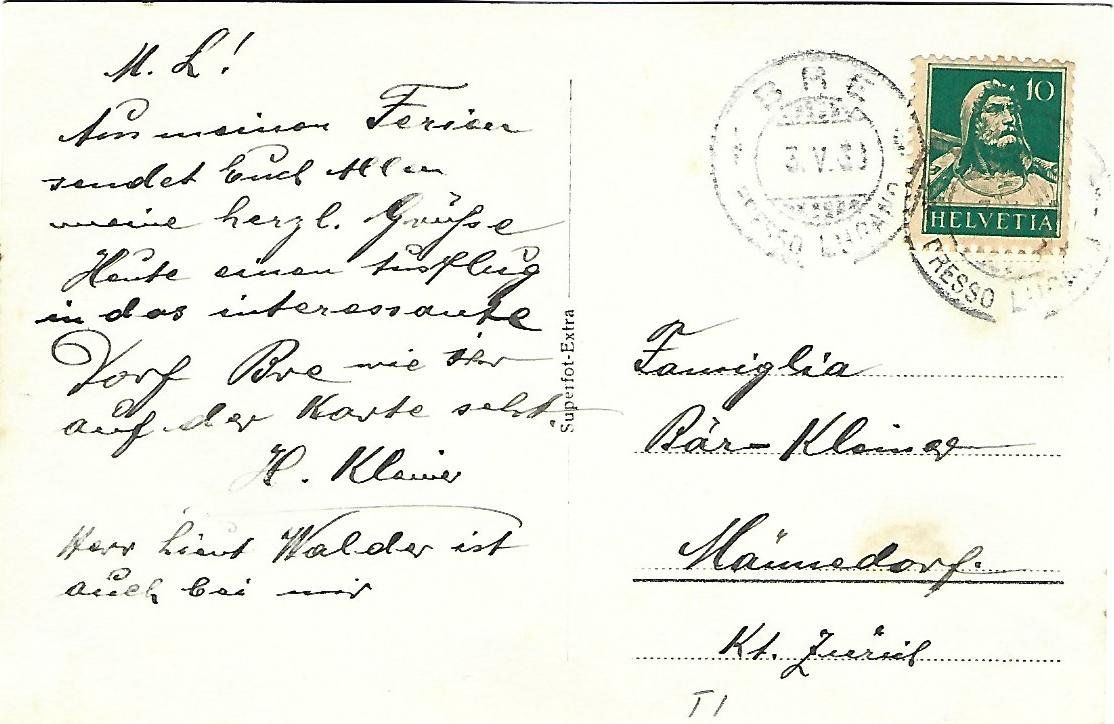 M. L!
Aus meinen Ferien
sendet Euch Allen
meine herzl. Grüsse
Heute einen Ausflug
in das interessante
Dorf Bre wie ihr
auf der Karte seht.
H. Kleiner
Herr Lieut Walder ist
auch bei mir
Superfot-Extra
BRE
3.V.3
PRESSO LUGANO
10
HELVETIA
PRESSO LUGANO
Famiglia
Bär-Kleiner
Männedorf.
Kt. Zürich
TI